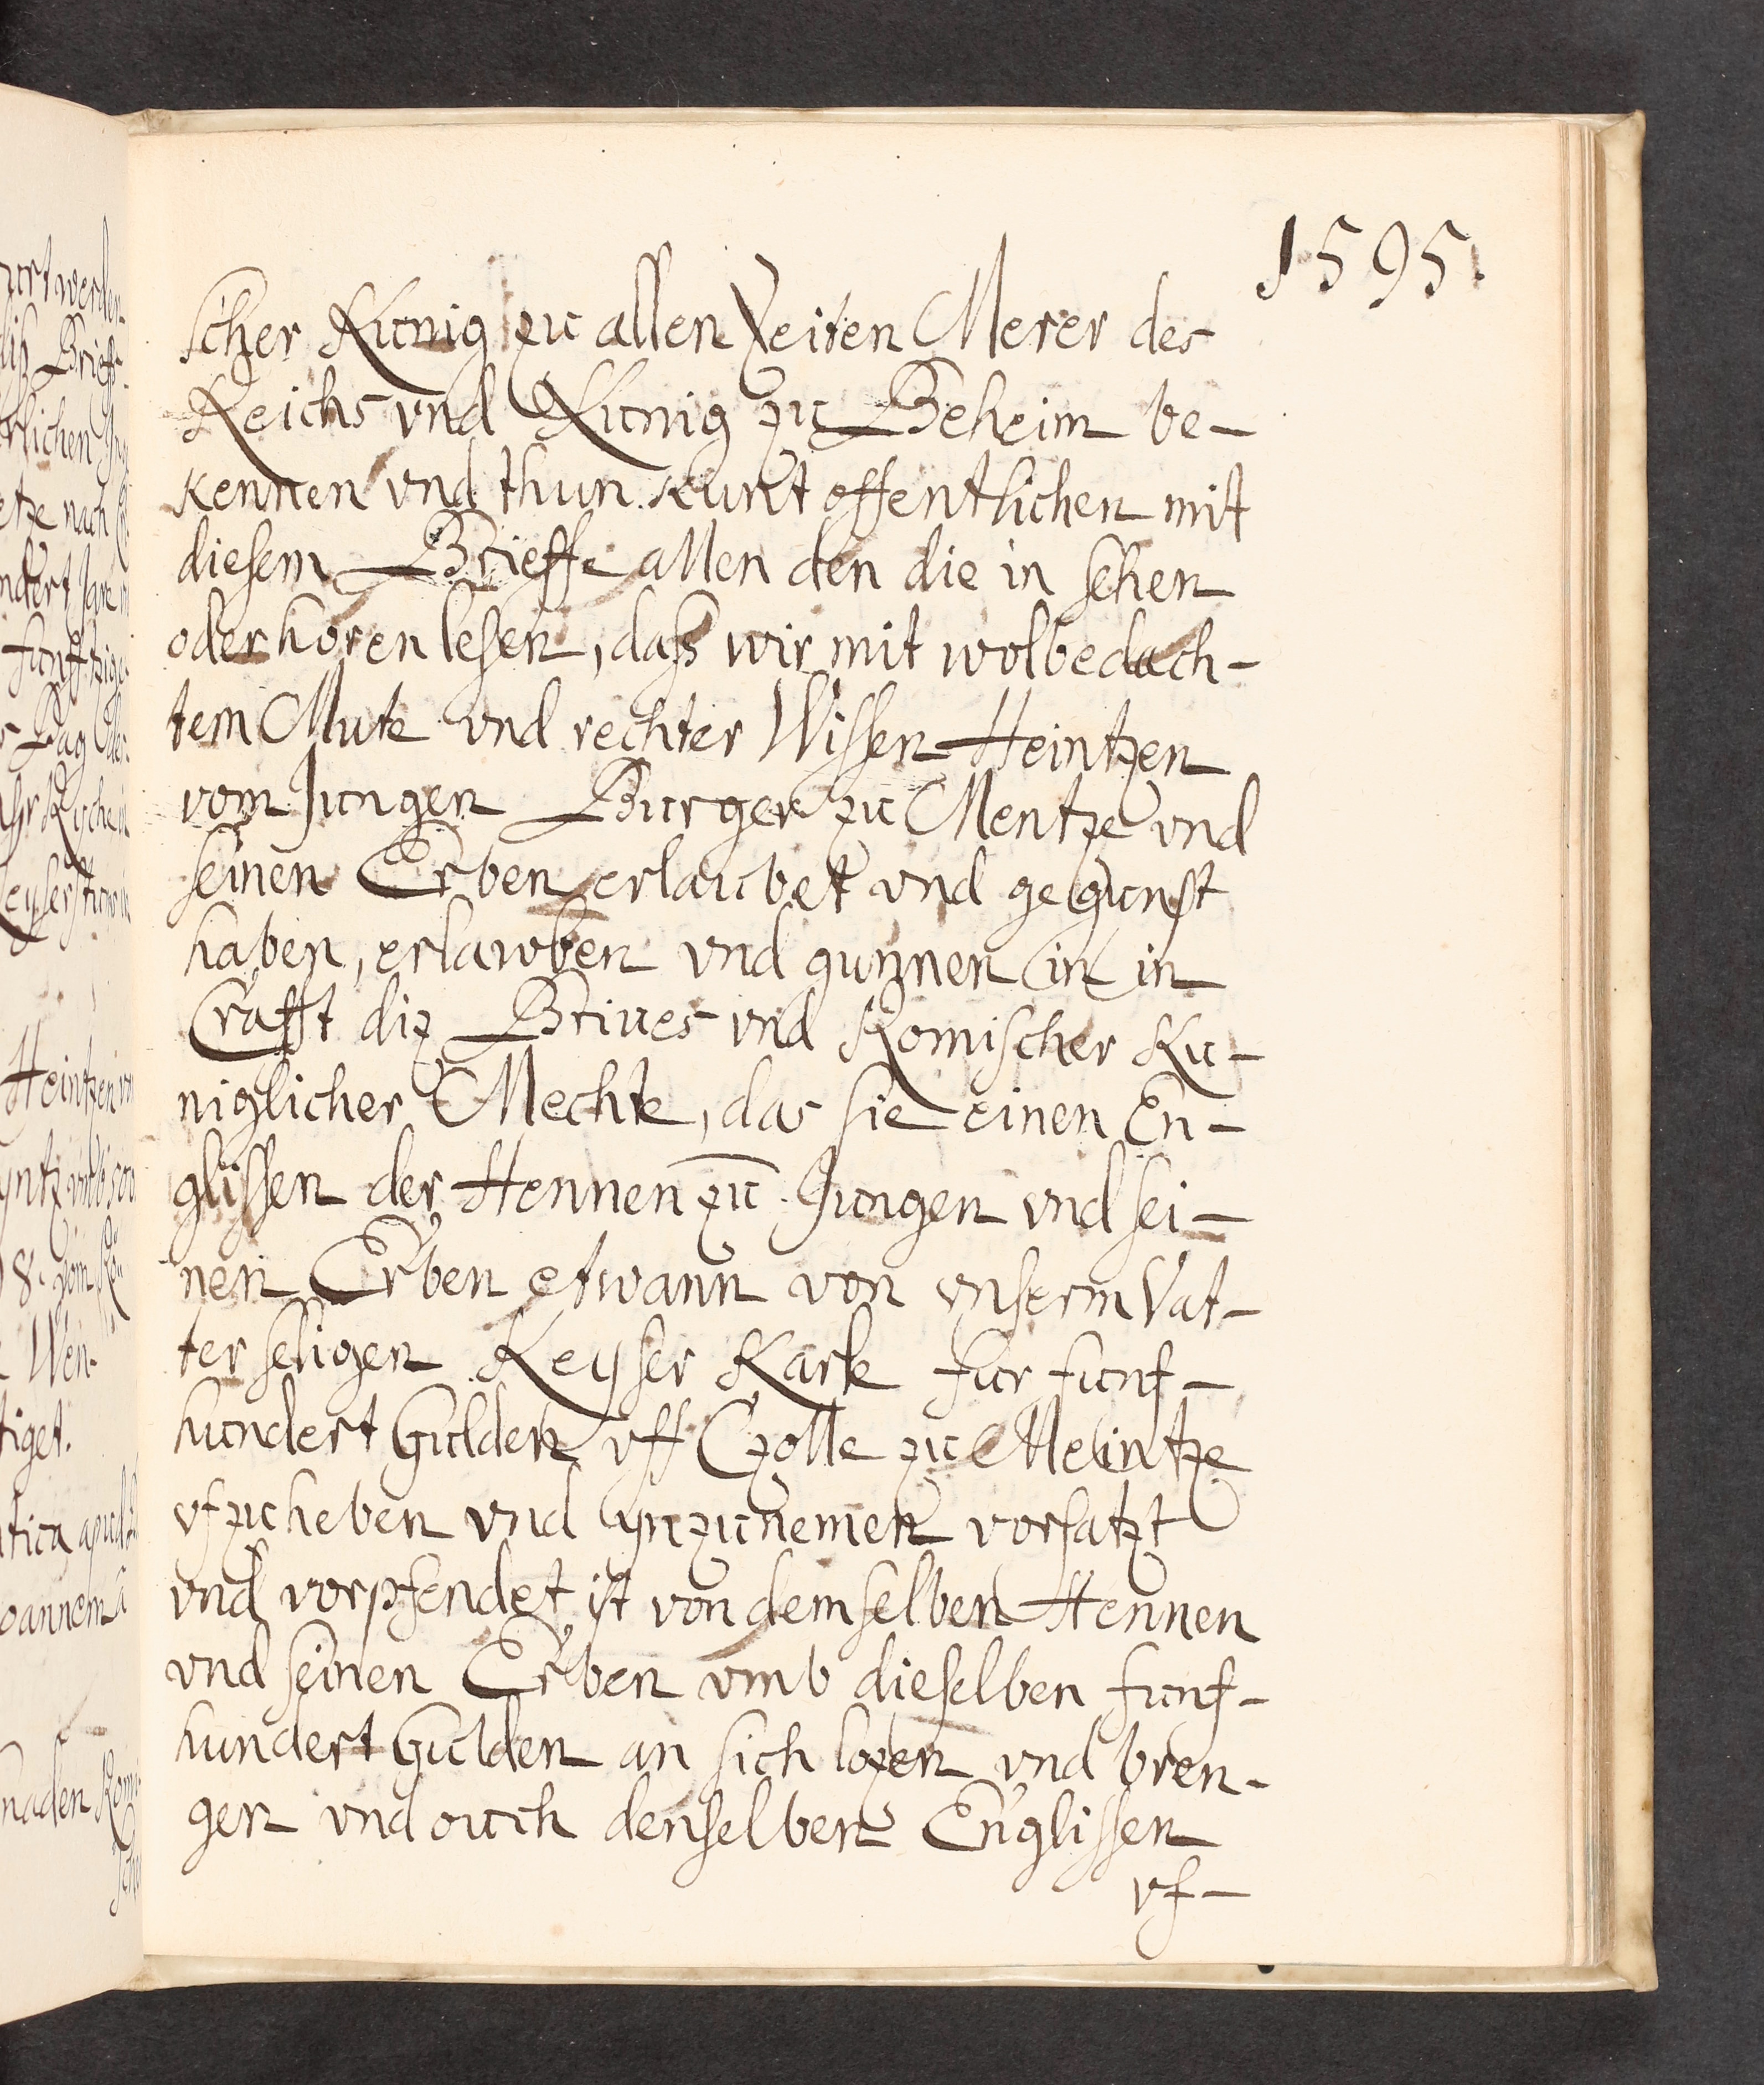 1595.
scher Kunig zu allen Zeiten Merer des
Reichs vnd Kunig zu Beheim be-
kennen vnd thun kunt offentlichen mit
diesem Brieffe allen den die in sehen
oder horen lesen, daß wir mit wolbedach-
tem Mute vnd rechter Wissen Heintzen
vom Jungen Burger zu Mentze vnd
seinen Erben erlaubet vnd gegunst
haben, erlawben vnd gunnen in in
Crafft diz Brives vnd Romischer Ku-
niglicher Mechte, das sie einen En-
glissen der Hennen zu Jungen vnd sei-
nen Erben etwann von vnserm Vat-
ter seligen Keyser Karle fur funf-
hundert Gulden vff Czolle zu Meintze
vfzuheben vnd ynzunemen vorsatzt
vnd vorpfendet ist von demselben Hennen
vnd seinen Erben vmb dieselben funf-
hundert Gulden an sich lozen vnd bren-
gen vnd ouch denselben Englissen
vf-
urt werden
Brieff
rlichen
etze nach
ndert Jare
funfftzig
Tag der
Heintzen
Wen-
tiget.
tica apud
oannem
naden Rom